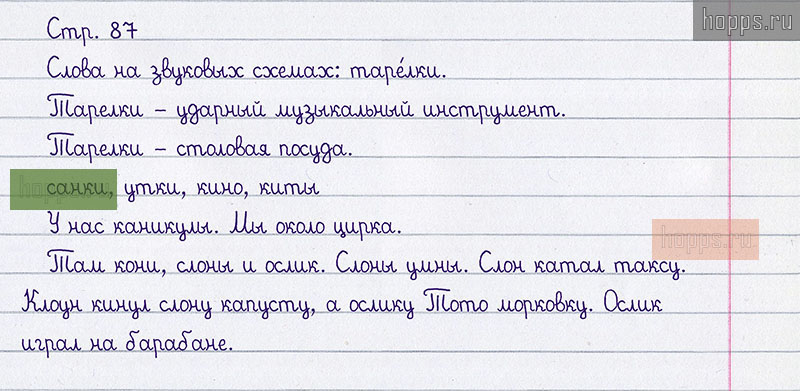 hopps.ru
Стр. 87
Слова на звуковых схемах: таре́лки.
Тарелки – ударный музыкальный инструмент.
Тарелки – столовая посуда.
санки, утки, кино, киты
У нас каникулы. Мы около цирка.
hopps.ru
Там кони, слоны и ослик. Слоны умны. Слон катал таксу.
Клоун кинул слону капусту, а ослику Тото морковку. Ослик
играл на барабане.